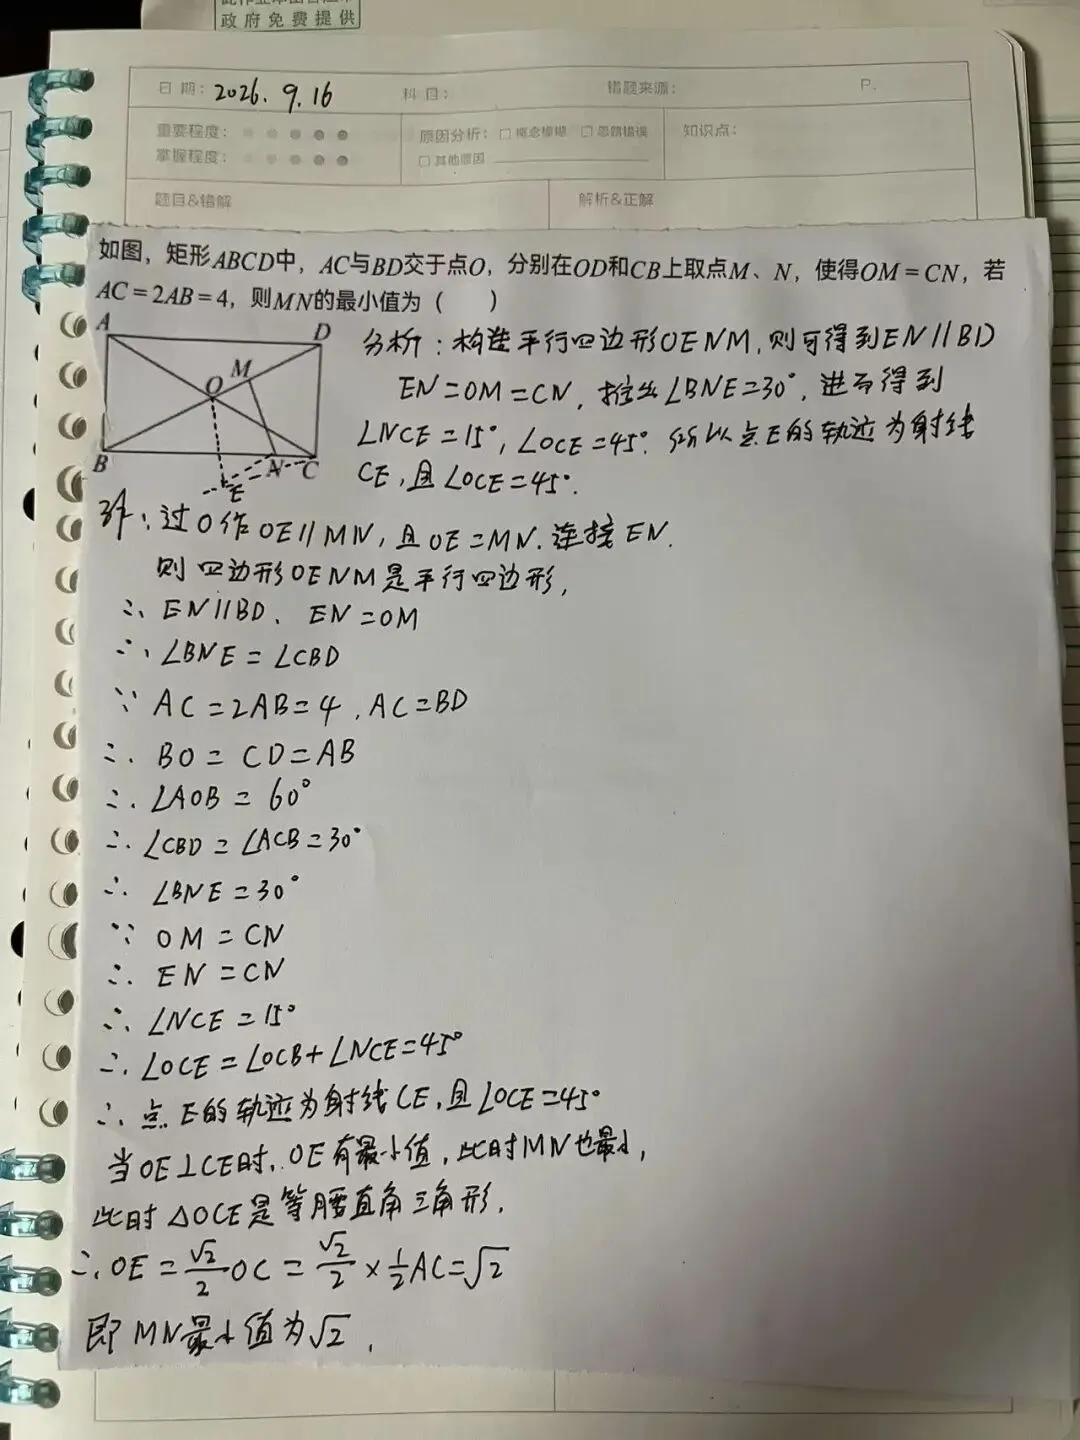 政府免费提供
日期: 2026.9.16 科目: 错题来源: P.
重要程度: 原因分析: □ 概念模糊 □ 思路错误 知识点:
掌握程度: □ 其他原因
题目&错解 解析&正解
如图，矩形ABCD中，AC与BD交于点O，分别在OD和CB上取点M、N，使得OM=CN，若
AC=2AB=4，则MN的最小值为（ ）
A D O M B N C E
分析：构造平行四边形OENM，则可得到EN//BD
EN=OM=CN，推出∠BNE=30°，进而得到
∠NCE=15°，∠OCE=45°．所以点E的轨迹为射线
CE，且∠OCE=45°．
解：过O作OE//MN，且OE=MN．连接EN．
则四边形OENM是平行四边形，
∴ EN//BD、EN=OM
∴ ∠BNE=∠CBD
∵ AC=2AB=4，AC=BD
∴ BO=CD=AB
∴ ∠AOB=60°
∴ ∠CBD=∠ACB=30°
∴ ∠BNE=30°
∵ OM=CN
∴ EN=CN
∴ ∠NCE=15°
∴ ∠OCE=∠OCB+∠NCE=45°
∴ 点E的轨迹为射线CE，且∠OCE=45°
当OE⊥CE时，OE有最小值，此时MN也最小，
此时△OCE是等腰直角三角形．
∴ OE=√2/2 OC=√2/2×1/2AC=√2
即MN最小值为√2．